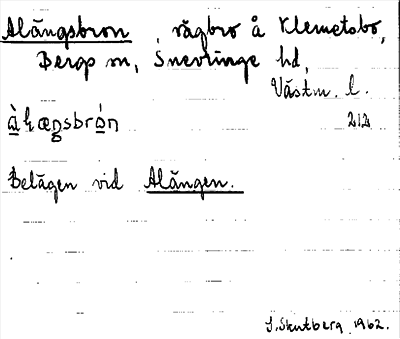 Alängsbron, vägbro å Klemetsbo,
Bergs sn, Snevringe hd,
Västm. l.
àlæŋsbrón 212
Belägen vid Alängen.
S. Skutberg 1962.